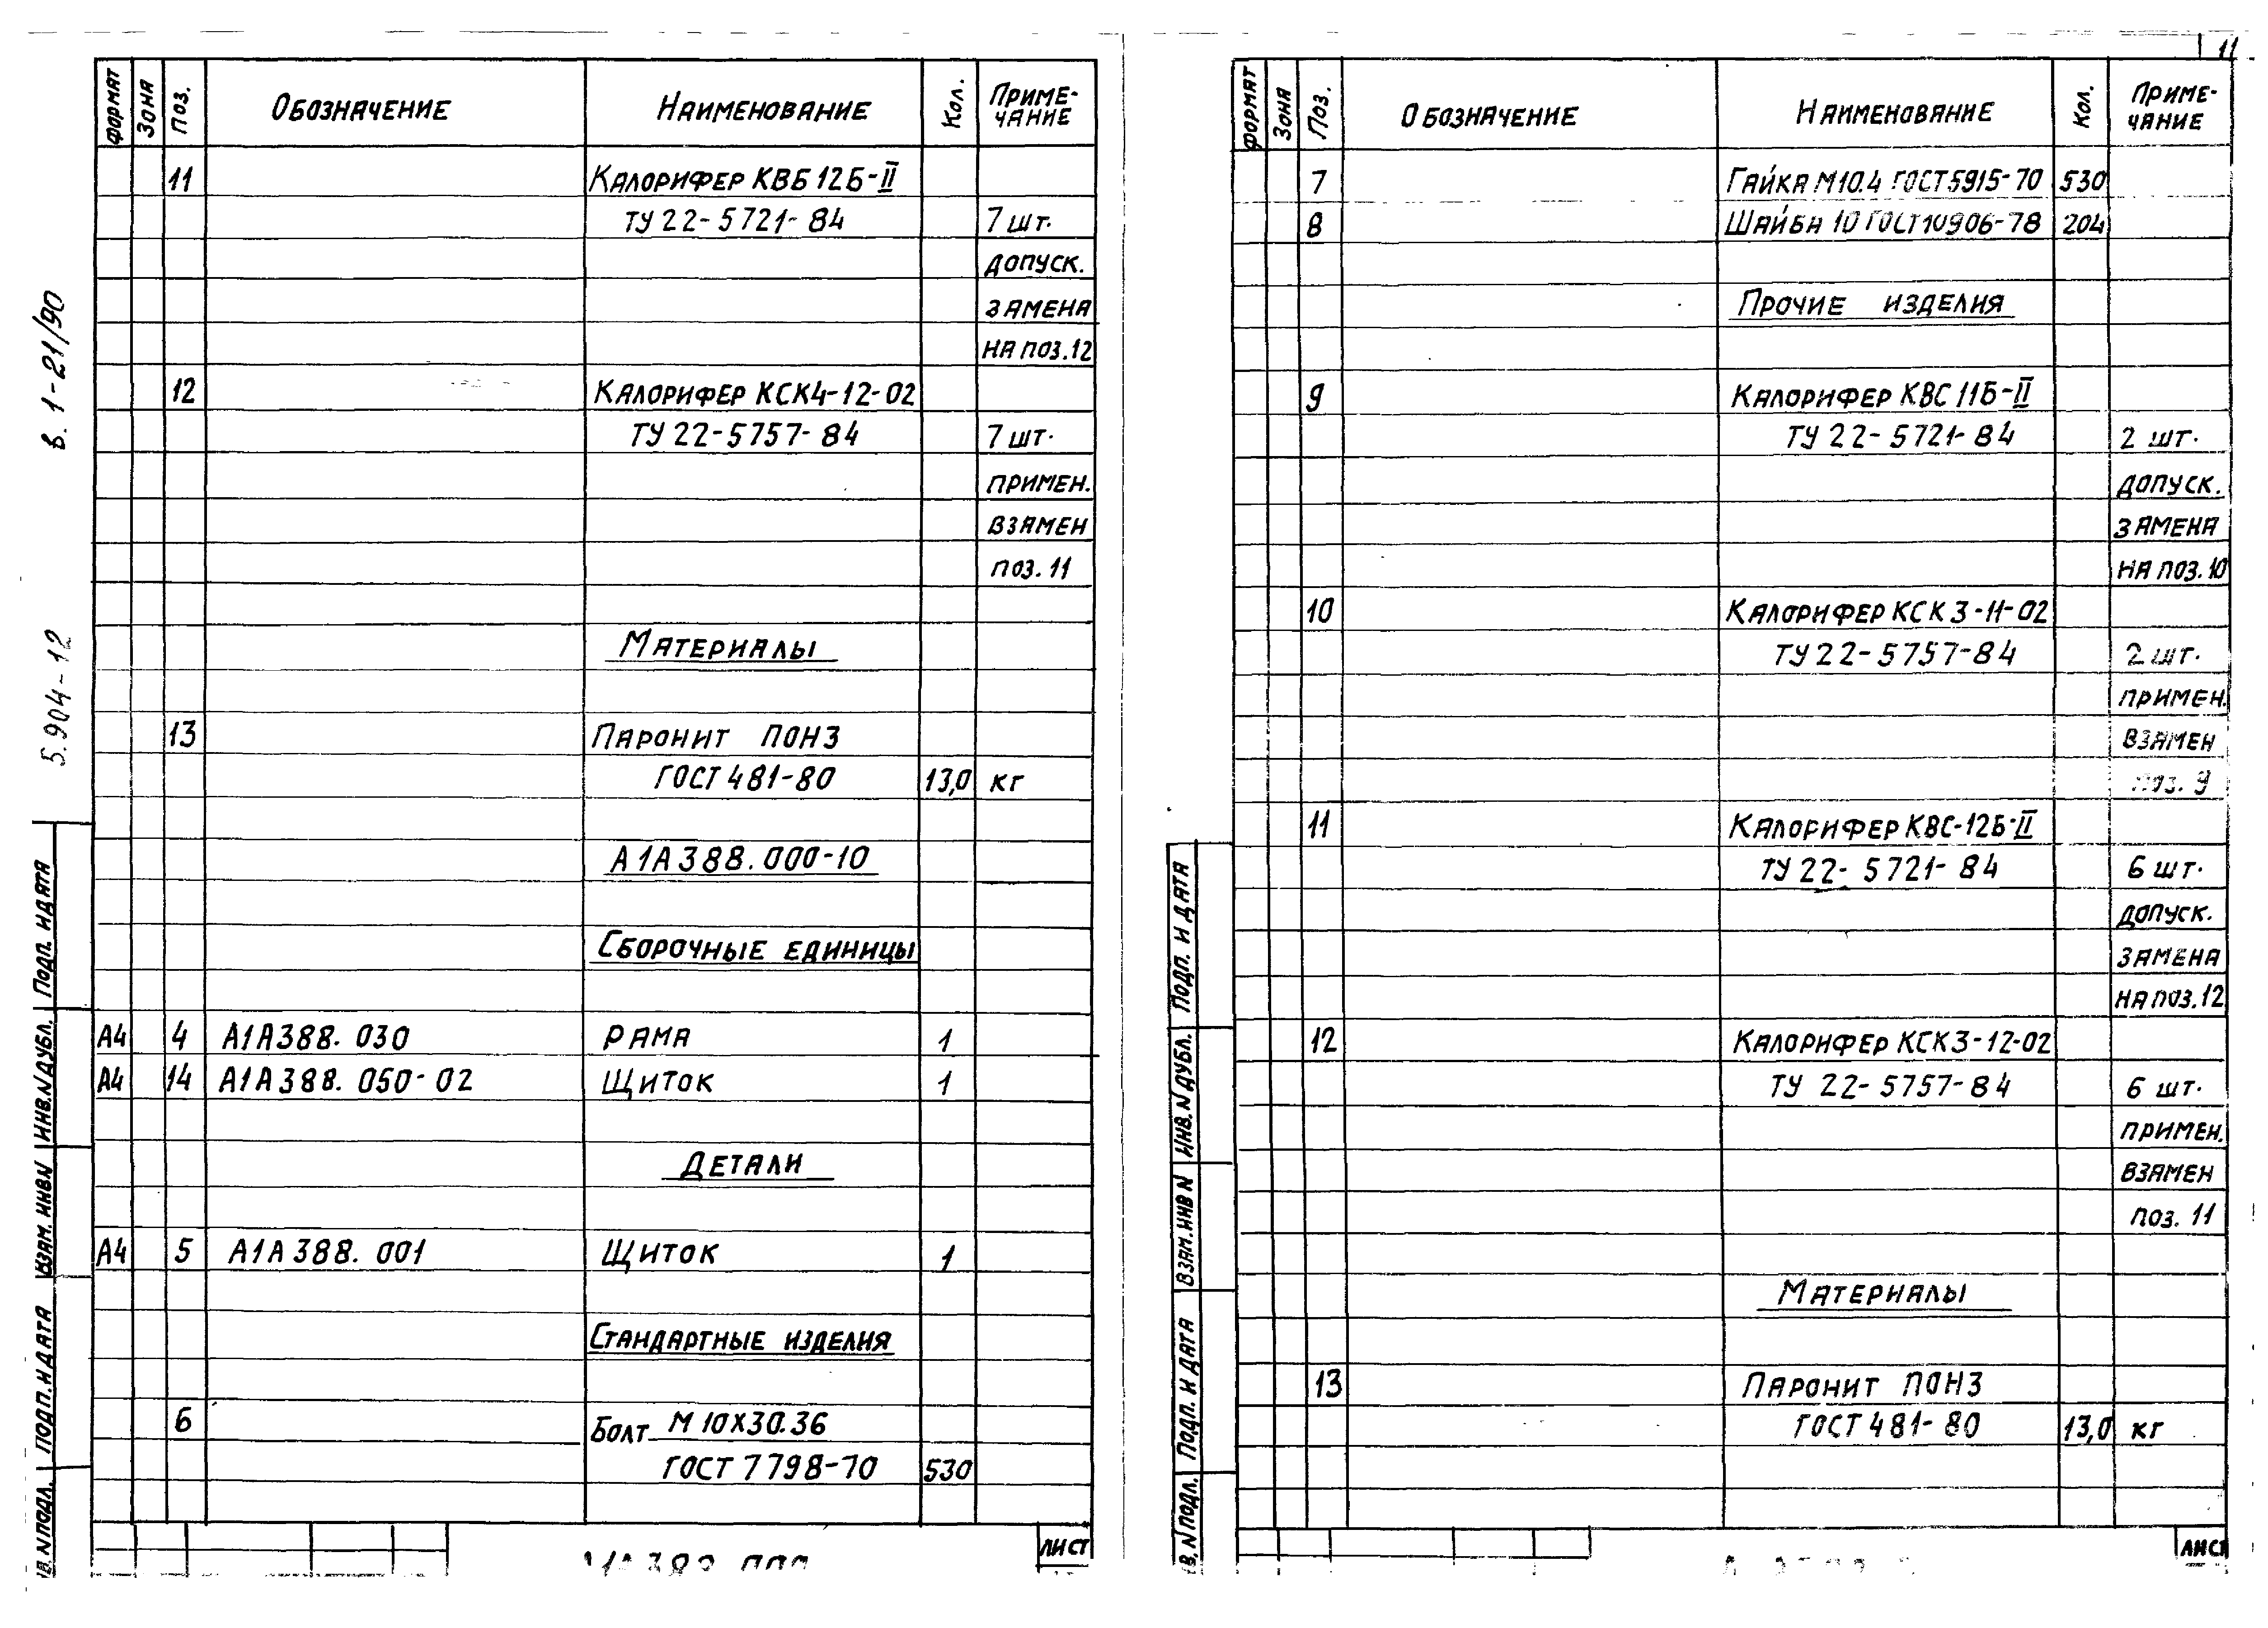 5.904-12 в. 1-21/90
ФОРМАТ ЗОНА ПОЗ. ОБОЗНАЧЕНИЕ НАИМЕНОВАНИЕ КОЛ. ПРИМЕ-
ЧАНИЕ
11 КАЛОРИФЕР КВБ 12Б-II
ТУ 22-5721-84 7 ШТ.
ДОПУСК.
ЗАМЕНА
НА ПОЗ.12
12 КАЛОРИФЕР КСК4-12-02
ТУ 22-5757-84 7 ШТ.
ПРИМЕН.
ВЗАМЕН
ПОЗ. 11
МАТЕРИАЛЫ
13 ПАРОНИТ ПОН3
ГОСТ 481-80 13,0 КГ
А1А388.000-10
СБОРОЧНЫЕ ЕДИНИЦЫ
А4 4 А1А388.030 РАМА 1
А4 14 А1А388.050-02 ЩИТОК 1
ДЕТАЛИ
А4 5 А1А388.001 ЩИТОК 1
СТАНДАРТНЫЕ ИЗДЕЛИЯ
6 БОЛТ М10Х30.36
ГОСТ 7798-70 530
ЛИСТ
ПОДП. И ДАТА
ИНВ.N ДУБЛ.
ВЗАМ. ИНВ N
ПОДП. И ДАТА
В. N ПОДЛ.
11
ФОРМАТ ЗОНА ПОЗ. ОБОЗНАЧЕНИЕ НАИМЕНОВАНИЕ КОЛ. ПРИМЕ-
ЧАНИЕ
7 ГАЙКА М10.4 ГОСТ 5915-70 530
8 ШАЙБА 10 ГОСТ 10906-78 204
ПРОЧИЕ ИЗДЕЛИЯ
9 КАЛОРИФЕР КВС 11Б-II
ТУ 22-5721-84 2 ШТ.
ДОПУСК.
ЗАМЕНА
НА ПОЗ. 10
10 КАЛОРИФЕР КСК 3-11-02
ТУ 22-5757-84 2 ШТ.
ПРИМЕН.
ВЗАМЕН
ПОЗ. 9
11 КАЛОРИФЕР КВС-12Б-II
ТУ 22-5721-84 6 ШТ.
ДОПУСК.
ЗАМЕНА
НА ПОЗ.12
12 КАЛОРИФЕР КСК3-12-02
ТУ 22-5757-84 6 ШТ.
ПРИМЕН.
ВЗАМЕН
ПОЗ. 11
МАТЕРИАЛЫ
13 ПАРОНИТ ПОН3
ГОСТ 481-80 13,0 КГ
ЛИСТ
ПОДП. И ДАТА
ИНВ. N ДУБЛ.
ВЗАМ. ИНВ N
ПОДП. И ДАТА
В. N ПОДЛ.